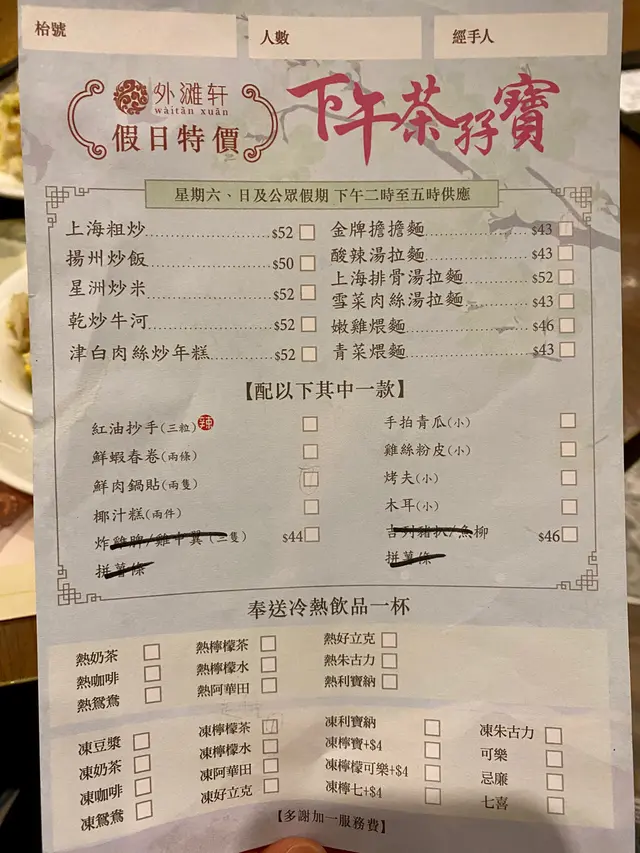 枱號
人數
經手人
外滩轩
wàitān xuān
假日特價
下午茶孖寶
星期六、日及公眾假期 下午二時至五時供應
上海粗炒 $52
揚州炒飯 $50
星洲炒米 $52
乾炒牛河 $52
津白肉絲炒年糕 $52
金牌擔擔麵 $43
酸辣湯拉麵 $43
上海排骨湯拉麵 $52
雪菜肉絲湯拉麵 $43
嫩雞煨麵 $46
青菜煨麵 $43
【配以下其中一款】
紅油抄手(三粒) 辣
鮮蝦春卷(兩條)
鮮肉鍋貼(兩隻)
椰汁糕(兩件)
炸雞髀/雞中翼(三隻) $44
拼薯條
手拍青瓜(小)
雞絲粉皮(小)
烤夫(小)
木耳(小)
吉列豬扒/魚柳 $46
拼薯條
奉送冷熱飲品一杯
熱奶茶
熱咖啡
熱鴛鴦
熱檸檬茶
熱檸檬水
熱阿華田
熱好立克
熱朱古力
熱利賓納
凍豆漿
凍奶茶
凍咖啡
凍鴛鴦
凍檸檬茶
凍檸檬水
凍阿華田
凍好立克
凍利賓納
凍檸寶+$4
凍檸檬可樂+$4
凍檸七+$4
凍朱古力
可樂
忌廉
七喜
【多謝加一服務費】